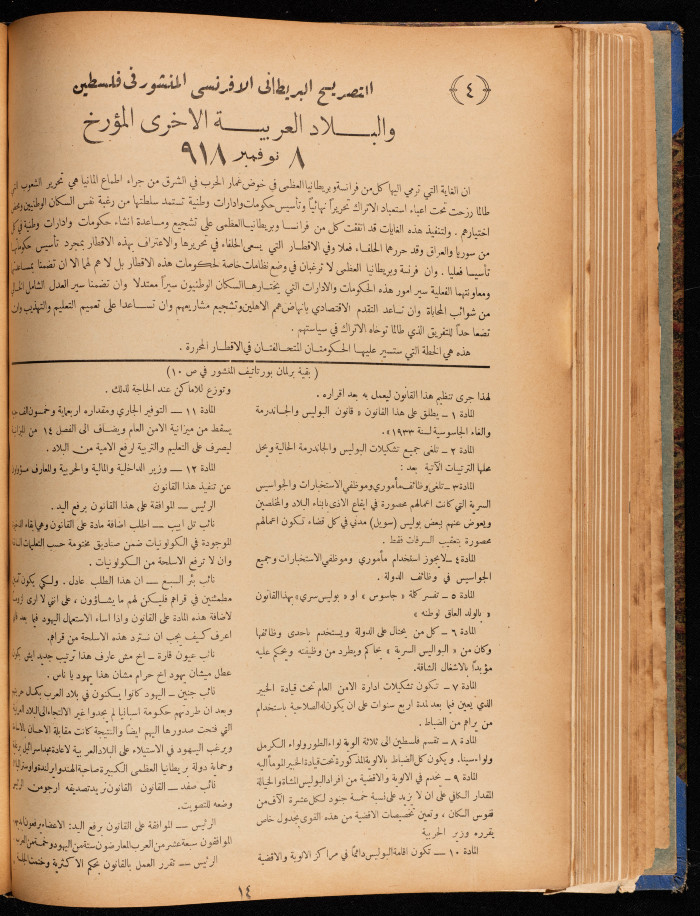 ﴿٤﴾
التصريح البريطاني الافرنسي المنشور في فلسطين
والبـلاد العربيـــة الاخرى المؤرخ
٨ نوفمبر ٩١٨
ان الغاية التي ترمي اليها كل من فرانسة وبريطانيا العظمى في خوض غمار الحرب في الشرق من جراء اطماع المانيا هي تحرير الشعوب
طالما رزحت تحت اعباء استعباد الاتراك تحريراً نهائياً وتأسيس حكومات وادارات وطنية تستمد سلطتها من رغبة نفس السكان الوطنيين
اختيارهم . ولتنفيذ هذه الغايات قد اتفقت كل من فرانسا وبريطانيا العظمى على تشجيع ومساعدة انشاء حكومات وادارات وطنية في كل
من سوريا والعراق وقد حررهما الحلفاء فعلا وفي الاقطار التي يسعى الحلفاء في تحريرها والاعتراف بهذه الاقطار بمجرد تأسيس
تأسيسا فعليا . وان فرنسة وبريطانيا العظمى لا ترغبان في وضع نظامات خاصة لحكومات هذه الاقطار بل لا هم لهما الا ان تضمنا
ومعاونتهما الفعلية سير امور هذه الحكومات والادارات التي يختارها السكان الوطنيون سيراً معتدلا وان تضمنا سير العدل الشامل
من شوائب المحاباة وان تساعد التقدم الاقتصادي بانهاض همم الاهلين وتشجيع مشاريعهم وان تساعدا على تعميم التعليم والتهذيب وان
تضعا حداً للتفريق الذي طالما توخاه الاتراك في سياستهم .
هذه هي الخطة التي ستسير عليها الحكومتان المتحالفتان في الاقطار المحررة .
( بقية برلمان بورتاتيف المنشور في ص ١٠ )
لهذا جرى تنظيم هذا القانون ليعمل به بعد اقراره .
المادة ١ ــ يطلق على هذا القانون « قانون البوليس والجاندرمة
والغاء الجاسوسية لسنة ١٩٣٣» .
المادة ٢ ــ تلغى جميع تشكيلات البوليس والجاندرمة الحالية ويحل
محلها الترتيبات الآتية بعد :
المادة ٣ ــ تلغى وظائف مأموري وموظفي الاستخبارات والجواسيس
السرية التي كانت اعمالهم محصورة في ايقاع الاذى بابناء البلاد والمخلصين
ويعوض عنهم ببعض بوليس (سويل) مدني في كل قضاء تكون اعمالهم
محصورة بتعقيب السرقات فقط .
المادة ٤ ــ لا يجوز استخدام مأموري وموظفي الاستخبارات وجميع
الجواسيس في وظائف الدولة .
المادة ٥ ــ تفسر كلمة « جاسوس » او « بوليس سري » بهذا القانون
« بالولد العاق لوطنه »
المادة ٦ ــ كل من يحتال على الدولة ويستخدم باحدى وظائفها
وكان من « البواليس السرية » يحاكم ويطرد من وظيفته ويحكم عليه
مؤبداً بالاشغال الشاقة.
المادة ٧ ــ تكون تشكيلات ادارة الامن العام تحت قيادة الخبير
الذي يعين فيما بعد لمدة اربع سنوات على ان يكون له الصلاحية باستخدام
من يراهم من الضباط .
المادة ٨ ــ تقسم فلسطين الى ثلاثة الوية لواء الطور ولواء الكرمل
ولواء سينا . ويكون كل الضباط بالالوية المذكورة تحت قيادة الخبير المومأ اليه
المادة ٩ ــ يخدم في الالوية والاقضية من افراد البوليس المشاة والخيالة
المقدار الكافي على ان لا يزيد على نسبة خمسة جنود لكل عشرة آلاف من
نفوس السكان ، وتعين تخصيصات الاقضية من هذه القوى بجدول خاص
يقرره وزير الحربية
المادة ١٠ ــ تكون اقامة البوليس دائماً في مراكز الالوية والاقضية
وتوزع للاماكن عند الحاجة لذلك .
المادة ١١ ــ التوفير الجاري ومقداره اربعماية وخمسون الف
يسقط من ميزانية الامن العام ويضاف الى الفصل ١٤ من
ليصرف على التعليم والتربية لرفع الامية من البلاد .
المادة ١٢ ــ وزير الداخلية والمالية والحربية والمعارف
عن تنفيذ هذا القانون
الرئيس ــ الموافقة على هذا القانون برفع اليد .
نائب تل ابيب ــ اطلب اضافة مادة على القانون وهي ابقاء
الموجودة في الكولونيات ضمن صناديق مختومة حسب التعليمات
وان لا ترفع الاسلحة من الكولونيات .
نائب بئر السبع ــ ان هذا الطلب عادل . ولكي يكون
مطمئنين في قراهم فليكن لهم ما يشاؤون ، على انني لا ارى
لاضافة هذه المادة على القانون واذا اساء الاستعمال اليهود فيما بعد
اعرف كيف يجب ان نسترد هذه الاسلحة من قراهم.
نائب عيون قارة ــ اخ مش عارف هذا ترتيب جديد ايش يكون
عطل ميشان يهود اخ حرام مشان هذا يهود يا ناس .
نائب جنين ــ اليهود كانوا يسكنون في بلاد العرب بكمال
وبعد ان طردتهم حكومة اسبانيا لم يجدوا غير الالتجاء الى البلاد
التي فتحت صدورها اليهم ايضاً والنتيجة كانت مقابلة الاحسان
ويرغب اليهود في الاستيلاء على البلاد العربية لاعادة مجد اسرائيل
وحماية دولة بريطانيا العظمى الكبيرة صاحبة الهند وايرلندة
نائب صفد ــ القانون القانون نريد تصديقه ارجو من
وضعه للتصويت.
الرئيس ــ الموافقة على القانون برفع اليد: الاعضاء يرفعون
الموافقون سبعة عشر من العرب المعارضون ستة من اليهود وخمسة من العرب
الرئيس ــ تقرر العمل بالقانون بحكم الاكثرية وختمت الجلسة
١٤